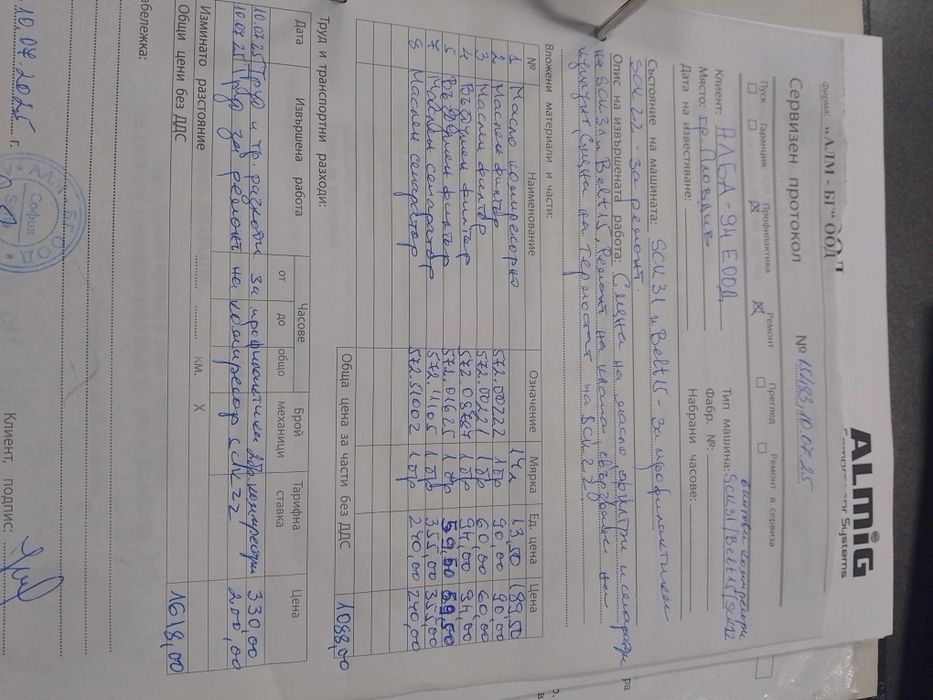 ALMiG
Compressor Systems
Фирма: "АЛМ - БГ" ООД
Сервизен протокол № 15483, 10.07.25
Пуск Гаранция Профилактика Ремонт Преглед Ремонт в сервиза
Клиент: АЛБА-94 ЕООД Тип машина: SCK31/Belt15/SCK22
винтови компресори
Място: гр. Пловдив Фабр. №:
Дата на известяване: Набрани часове:
Състояние на машината: SCK31 и Belt15 - за профилактика
SCK22 - за ремонт.
Опис на извършената работа: Смяна на масло, филтри и сепаратори
на SCK31 и Belt15, Ремонт на
(смяна на термостат на SCK22
Вложени материали и части:
№ Наименование Означение Мярка Ед. цена Цена
1 Масло компресорно 14л 13,50 189,50
2 Маслен филтър 572.00222 1бр 90,00 90,00
3 Маслен филтър 572.00221 1бр 60,00 60,00
4 Въздушен филтър 1бр 94,00 94,00
5 Въздушен филтър 571.01625 1бр 59,50 59,50
7 Маслен сепаратор 572.11105 1бр 355,00 355,00
8 Маслен сепаратор 572.51002 1бр 240,00 240,00
Обща цена за части без ДДС 1088,00
Труд и транспортни разходи:
Дата Извършена работа Часове Брой механици Тарифна ставка Цена
от до общо
10.07.25 Труд и тр. разходи за профилактика 2бр. компресори 330,00
10.07.25 Труд за ремонт на компресор SCK22 200,00
Изминато разстояние км. X
Общи цени без ДДС 1618,00
абележка:
10.07.2025 г.
АЛМ БГ ООД
София
Клиент, подпис: